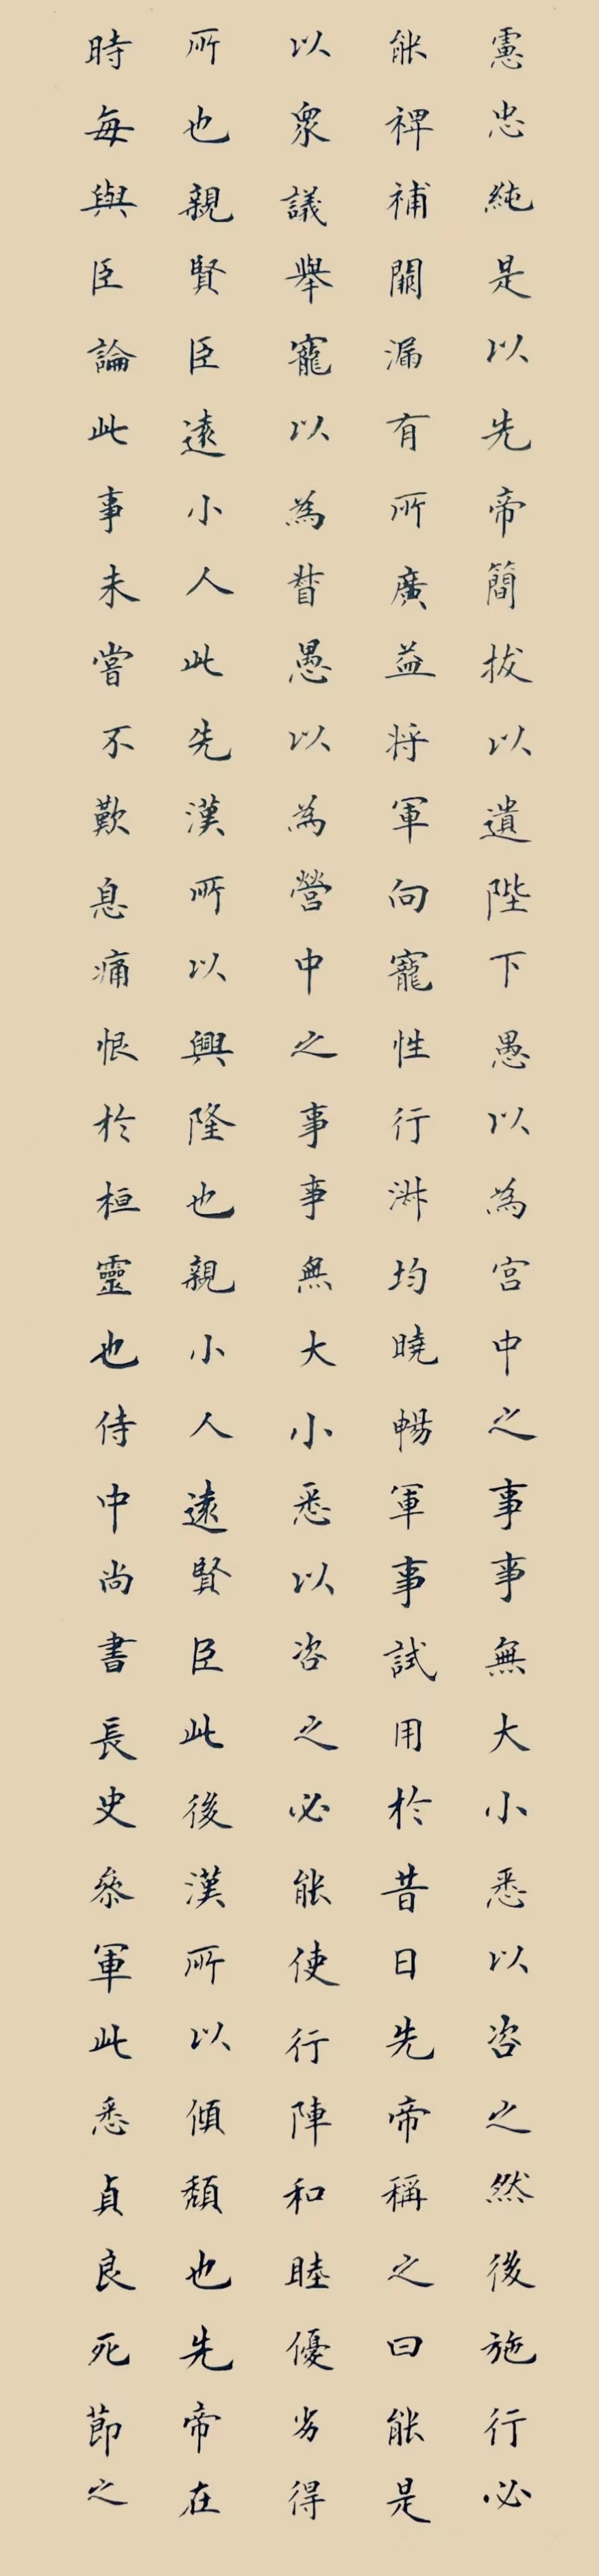 慮忠純是以先帝簡拔以遺陛下愚以為宮中之事事無大小悉以咨之然後施行必
能裨補闕漏有所廣益將軍向寵性行淑均曉暢軍事試用於昔日先帝稱之曰能是
以眾議舉寵以為督愚以為營中之事事無大小悉以咨之必能使行陣和睦優劣得
所也親賢臣遠小人此先漢所以興隆也親小人遠賢臣此後漢所以傾頹也先帝在
時每與臣論此事未嘗不歎息痛恨於桓靈也侍中尚書長史參軍此悉貞良死節之